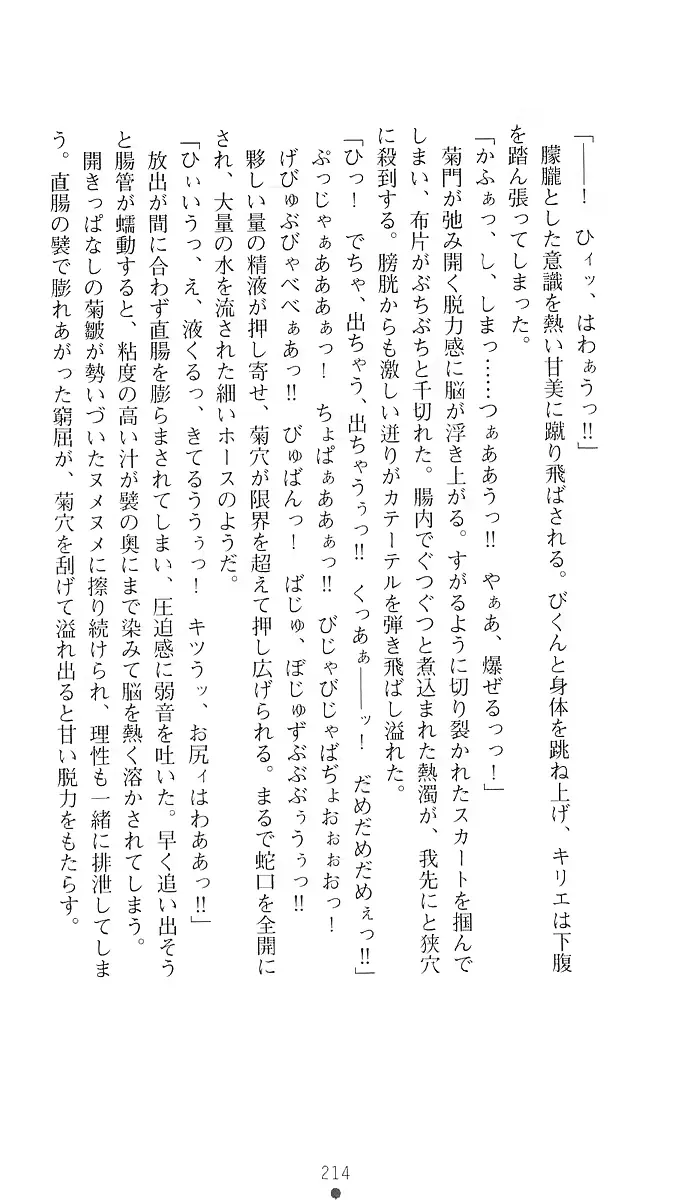 「――！　ひィッ、はわぁうっ!!」
　朦朧とした意識を熱い甘美に蹴り飛ばされる。びくんと身体を跳ね上げ、キリエは下腹
を踏ん張ってしまった。
「かふぁっ、し、しまっ……つぁああうっ!!　やぁあ、爆ぜるっっ！」
　菊門が弛み開く脱力感に脳が浮き上がる。すがるように切り裂かれたスカートを掴んで
しまい、布片がぶちぶちと千切れた。腸内でぐつぐつと煮込まれた熱濁が、我先にと狭穴
に殺到する。膀胱からも激しい迸りがカテーテルを弾き飛ばし溢れた。
「ひっ！　でちゃ、出ちゃう、出ちゃうぅっ!!　くっあぁ――ッ！　だめだめだめぇっ!!」
　ぷっじゃぁあああぁっ！　ちょぱぁああぁっ!!　びじゃびじゃばぢょおぉぉおっ！
　げびゅぶびゃべべぁあっ!!　びゅばんっ！　ばじゅ、ぼじゅずぶぶぶぅうぅっ!!
　夥しい量の精液が押し寄せ、菊穴が限界を超えて押し広げられる。まるで蛇口を全開に
され、大量の水を流された細いホースのようだ。
「ひぃいうっ、え、液くるっ、きてるううぅっ！　キツうッ、お尻ィはわああっ!!」
　放出が間に合わず直腸を膨らまされてしまい、圧迫感に弱音を吐いた。早く追い出そう
と腸管が蠕動すると、粘度の高い汁が襞の奥にまで染みて脳を熱く溶かされてしまう。
　開きっぱなしの菊皺が勢いづいたヌメヌメに擦り続けられ、理性も一緒に排泄してしま
う。直腸の襞で膨れあがった窮屈が、菊穴を刮げて溢れ出ると甘い脱力をもたらす。
214